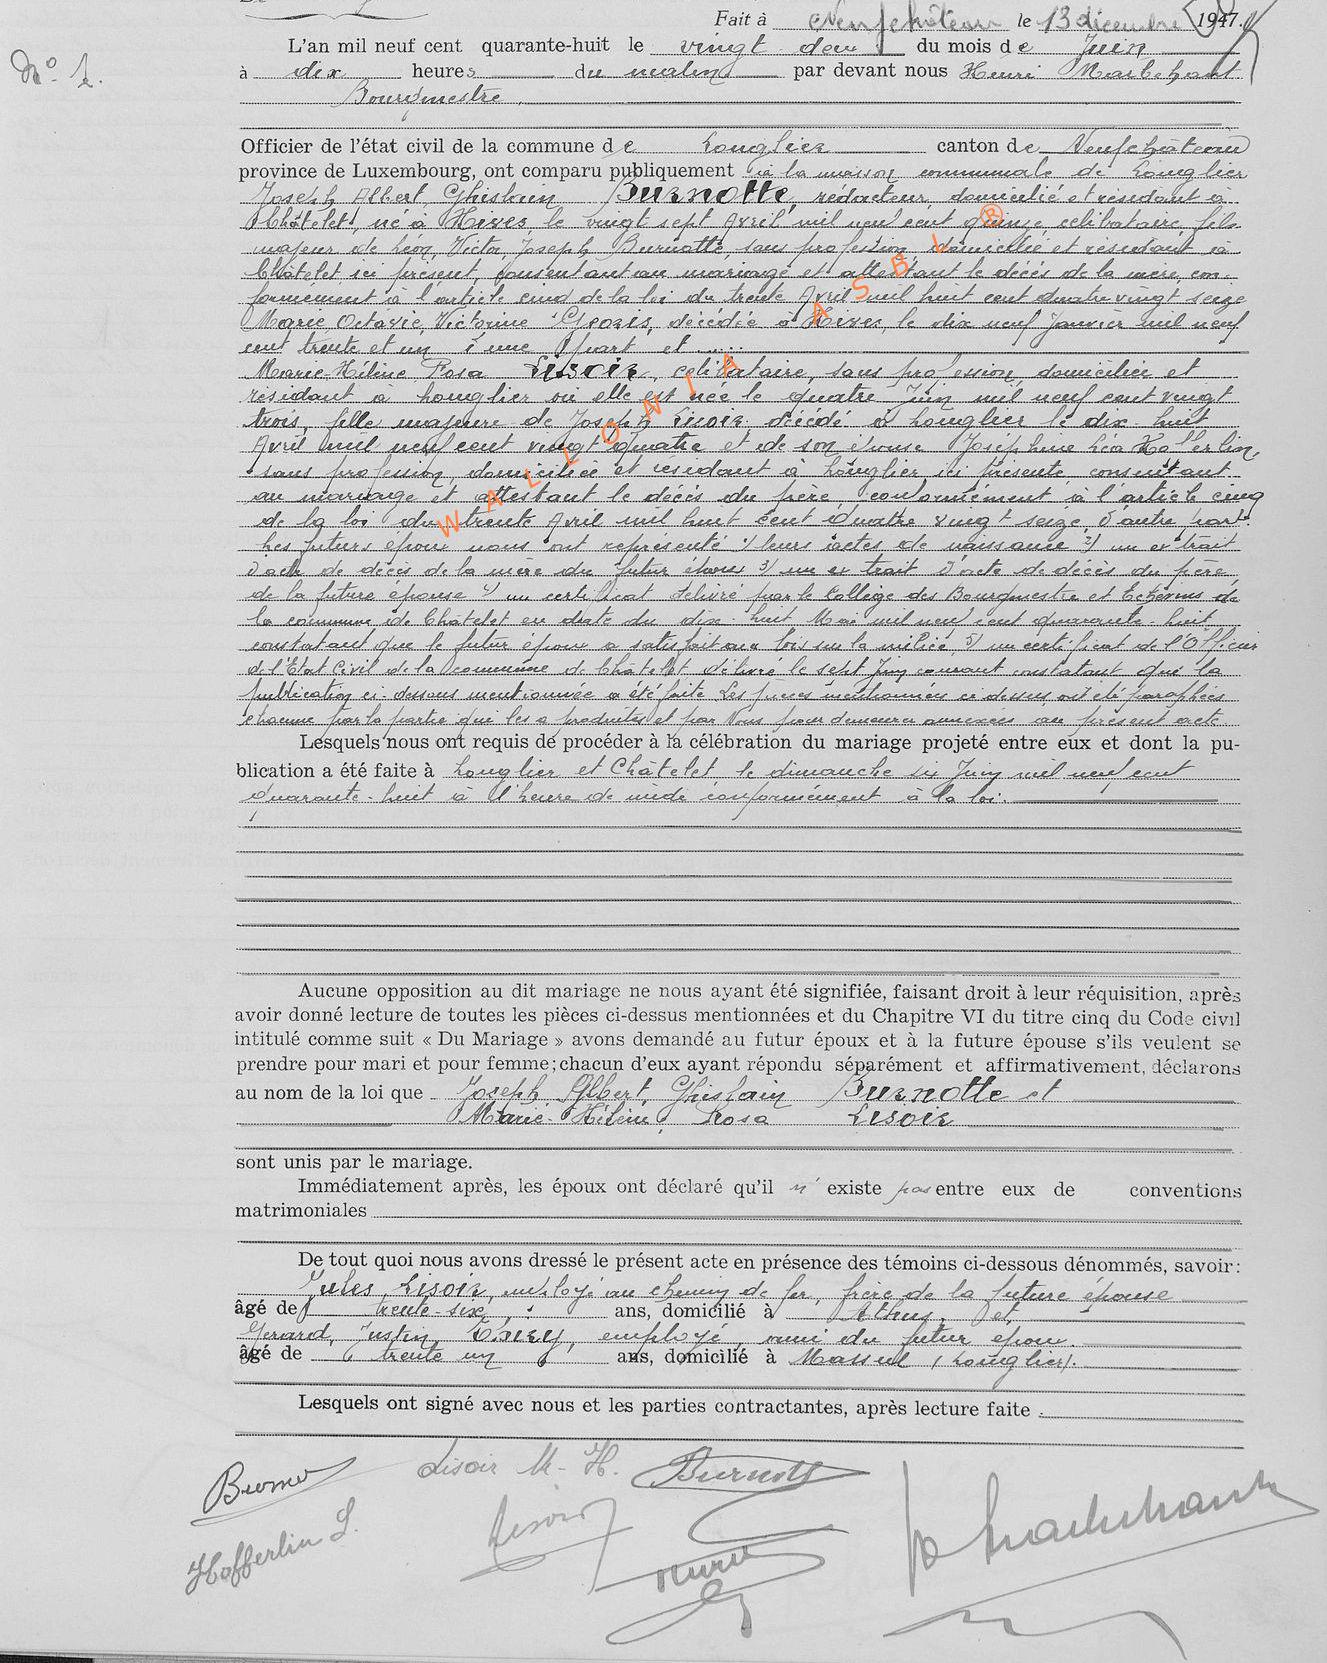 Fait à Neufchâteau le 13 décembre 1947.
N° 1.
L'an mil neuf cent quarante-huit le vingt deux du mois de Juin
à dix heures du matin par devant nous Henri Marbehant
Bourgmestre,
Officier de l'état civil de la commune de Longlier canton de Neufchâteau
province de Luxembourg, ont comparu publiquement à la maison communale de Longlier
Joseph, Albert, Ghislain Burnotte, rédacteur, domicilié et résidant à
Châtelet, né à Hives, le vingt sept Avril mil neuf cent quinze, célibataire, fils
majeur de Léon, Victor, Joseph Burnotte, sans profession domicilié et résidant à
Châtelet ici présent, consentant au mariage et attestant le décès de la mère, con-
formément à l'article cinq de la loi du trente Avril mil huit cent quatre vingt seize
Marie Octavie, Victorine Georis, décédée à Hives, le dix neuf Janvier mil neuf
cent trente et un d'une part et ......
Marie-Hélène Rosa Lisoir, célibataire, sans profession, domiciliée et
résidant à Longlier où elle est née le quatre Juin mil neuf cent vingt
trois, fille majeure de Joseph Lisoir, décédé à Longlier le dix-huit
Avril mil neuf cent vingt quatre et de son épouse Joséphine Léa Hofferlin,
sans profession, domiciliée et résidant à Longlier, ici présente, consentant
au mariage et attestant le décès du père, conformément à l'article cinq
de la loi du trente Avril mil huit cent quatre vingt seize, d'autre part.
Les futurs époux nous ont représenté 1) leurs actes de naissance 2) un extrait
d'acte de décès de la mère du futur époux 3) un extrait d'acte de décès du père
de la future épouse 4) un certificat délivré par le Collège des Bourgmestre et Echevins de
la commune de Châtelet en date du dix-huit Mai mil neuf cent quarante-huit
constatant que le futur époux a satisfait aux lois sur la milice, 5) un certificat de l'Officier
de l'Etat Civil de la commune de Châtelet délivré le sept Juin courant constatant que la
publication ci-dessous mentionnée a été faite. Les pièces mentionnées ci-dessus ont été paraphées
chacune par la partie qui les a produites et par Nous pour demeurer annexées au présent acte
Lesquels nous ont requis de procéder à la célébration du mariage projeté entre eux et dont la pu-
blication a été faite à Longlier et Châtelet le dimanche six Juin mil neuf cent
quarante-huit à l'heure de midi conformément à la loi.
Aucune opposition au dit mariage ne nous ayant été signifiée, faisant droit à leur réquisition, après
avoir donné lecture de toutes les pièces ci-dessus mentionnées et du Chapitre VI du titre cinq du Code civil
intitulé comme suit « Du Mariage » avons demandé au futur époux et à la future épouse s'ils veulent se
prendre pour mari et pour femme; chacun d'eux ayant répondu séparément et affirmativement, déclarons
au nom de la loi que Joseph, Albert, Ghislain Burnotte et
Marie-Hélène, Rosa Lisoir
sont unis par le mariage.
Immédiatement après, les époux ont déclaré qu'il n'existe pas entre eux de conventions
matrimoniales
De tout quoi nous avons dressé le présent acte en présence des témoins ci-dessous dénommés, savoir:
Jules Lisoir, employé au chemin de fer, frère de la future épouse
âgé de trente-six ans, domicilié à Athus, et,
Gerard, Justin, employé, ami du futur époux
âgé de trente un ans, domicilié à Massul (Longlier).
Lesquels ont signé avec nous et les parties contractantes, après lecture faite.
Lisoir M-H. Burnotte
Hofferlin L. Lisoir
WALLONIA ASBL ®